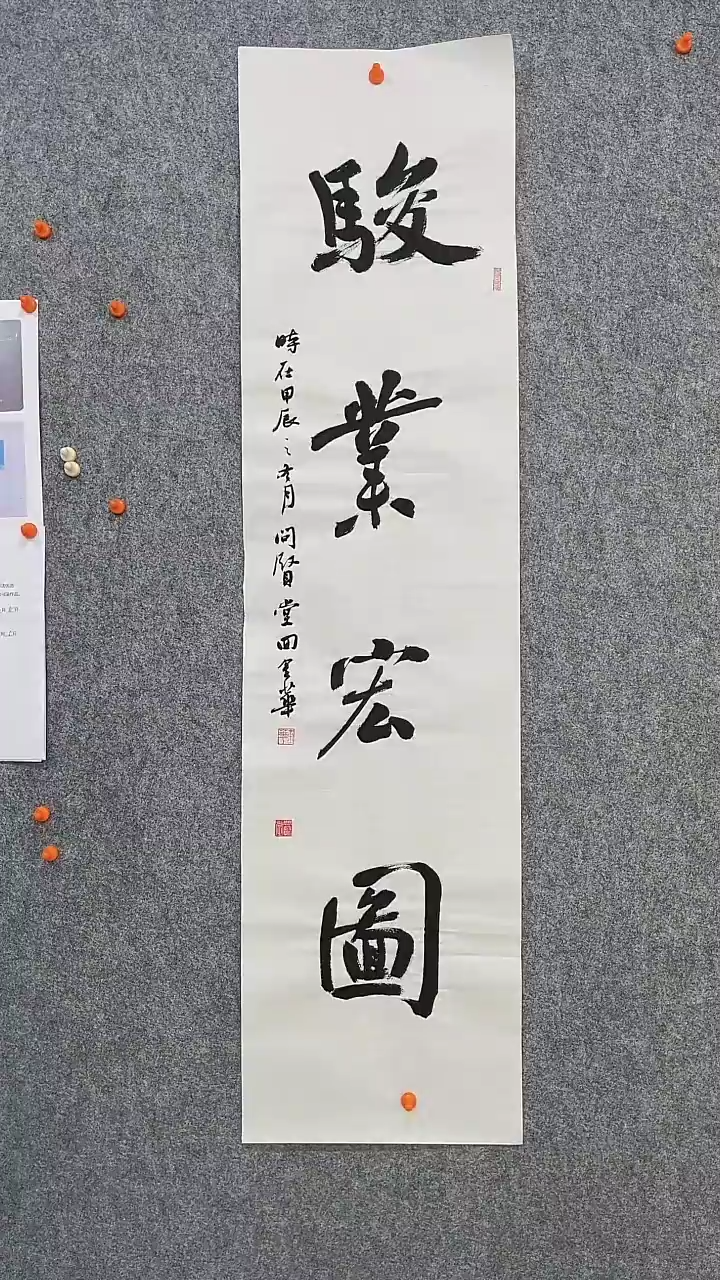 駿業宏圖
時在甲辰之冬月問賢堂四羊華